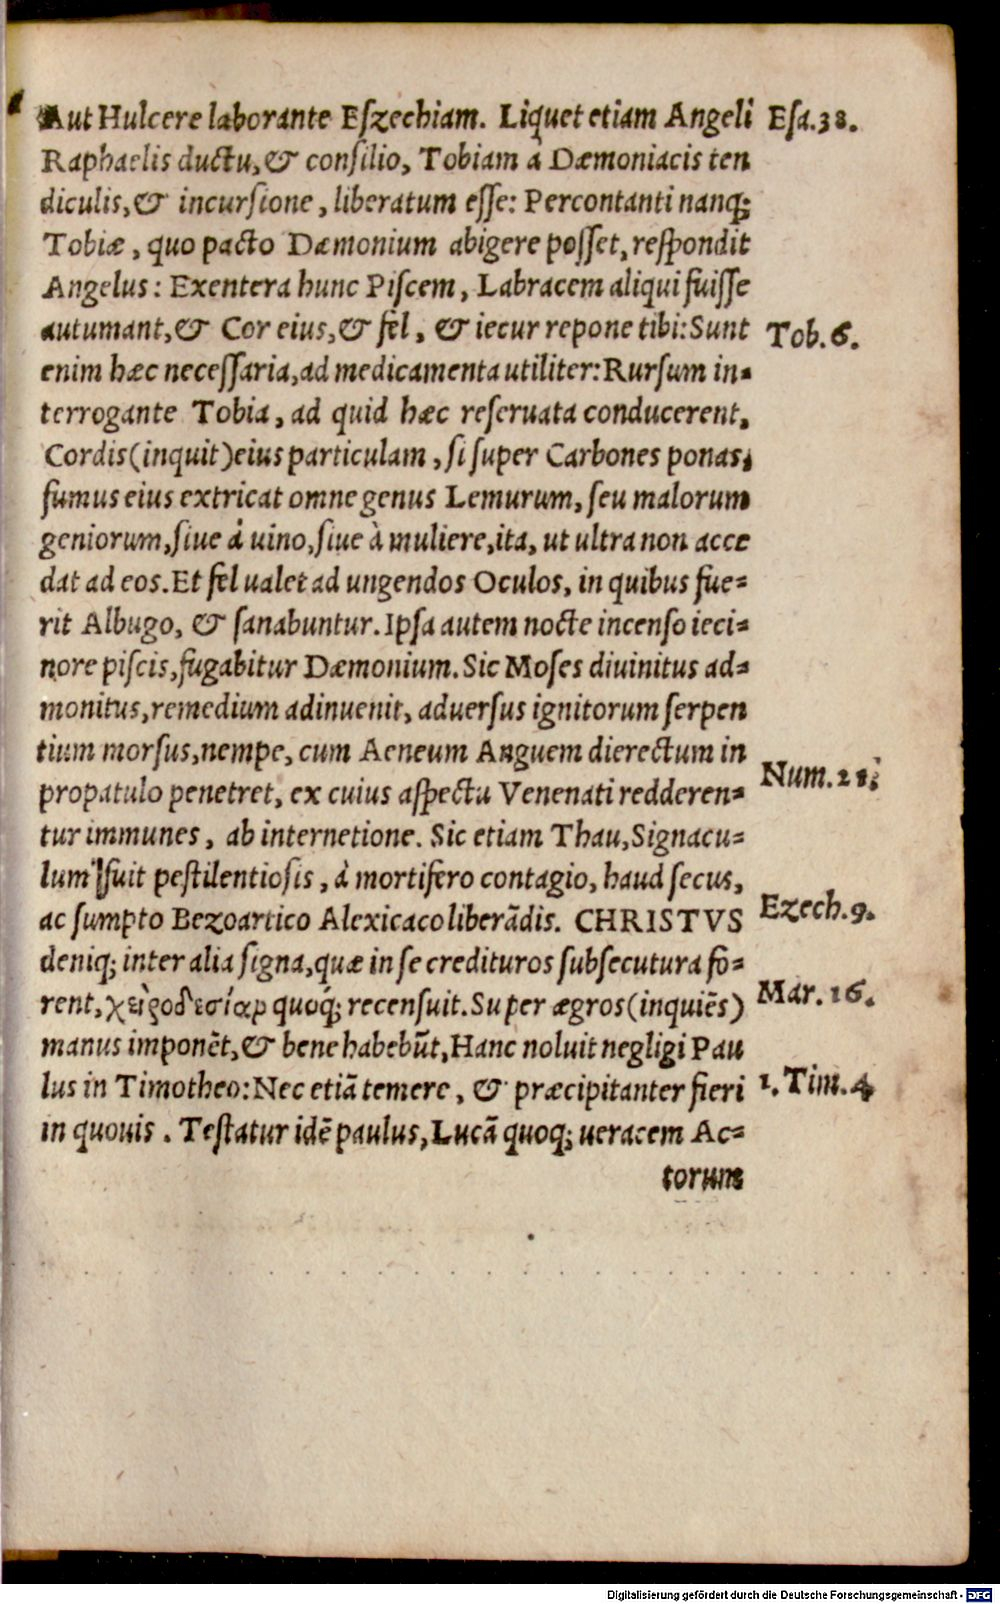 Aut Hulcere laborante Eſzechiam. Liquet etiam Angeli Eſa.38.
Raphaelis ductu, & conſilio, Tobiam à Dæmoniacis ten
diculis, & incurſione, liberatum eſſe: Percontanti nanq;
Tobiæ, quo pacto Dæmonium abigere poſſet, reſpondit
Angelus: Exentera hunc Piſcem, Labracem aliqui fuiſſe
autumant, & Cor eius, & fel, & iecur repone tibi: Sunt Tob.6.
enim hæc neceſſaria, ad medicamenta utiliter: Rurſum in-
terrogante Tobia, ad quid hæc reſeruata conducerent,
Cordis (inquit) eius particulam, ſi ſuper Carbones ponas,
fumus eius extricat omne genus Lemurum, ſeu malorum
geniorum, ſiue à uino, ſiue à muliere, ita, ut ultra non acce
dat ad eos. Et fel ualet ad ungendos Oculos, in quibus fue-
rit Albugo, & ſanabuntur. Ipſa autem nocte incenſo ieci-
nore piſcis, fugabitur Dæmonium. Sic Moſes diuinitus ad-
monitus, remedium adinuenit, aduerſus ignitorum ſerpen
tium morſus, nempe, cum Aeneum Anguem dierectum in
propatulo penetret, ex cuius aſpectu Venenati redderen- Num.21.
tur immunes, ab internetione. Sic etiam Thau, Signacu-
lum fuit peſtilentioſis, à mortifero contagio, haud ſecus,
ac ſumpto Bezoartico Alexicaco liberādis. CHRISTVS Ezech.9.
deniq; inter alia ſigna, quæ in ſe credituros ſubſecutura fo-
rent, quoq́; recenſuit. Super ægros (inquiẽs) Mar.16.
manus imponẽt, & bene habebūt, Hanc noluit negligi Pau
lus in Timotheo: Nec etiā temere, & præcipitanter fieri 1.Tim.4
in quouis. Teſtatur idẽ paulus, Lucā quoq; ueracem Ac-
torum
Digitalisierung gefördert durch die Deutsche Forschungsgemeinschaft - DFG